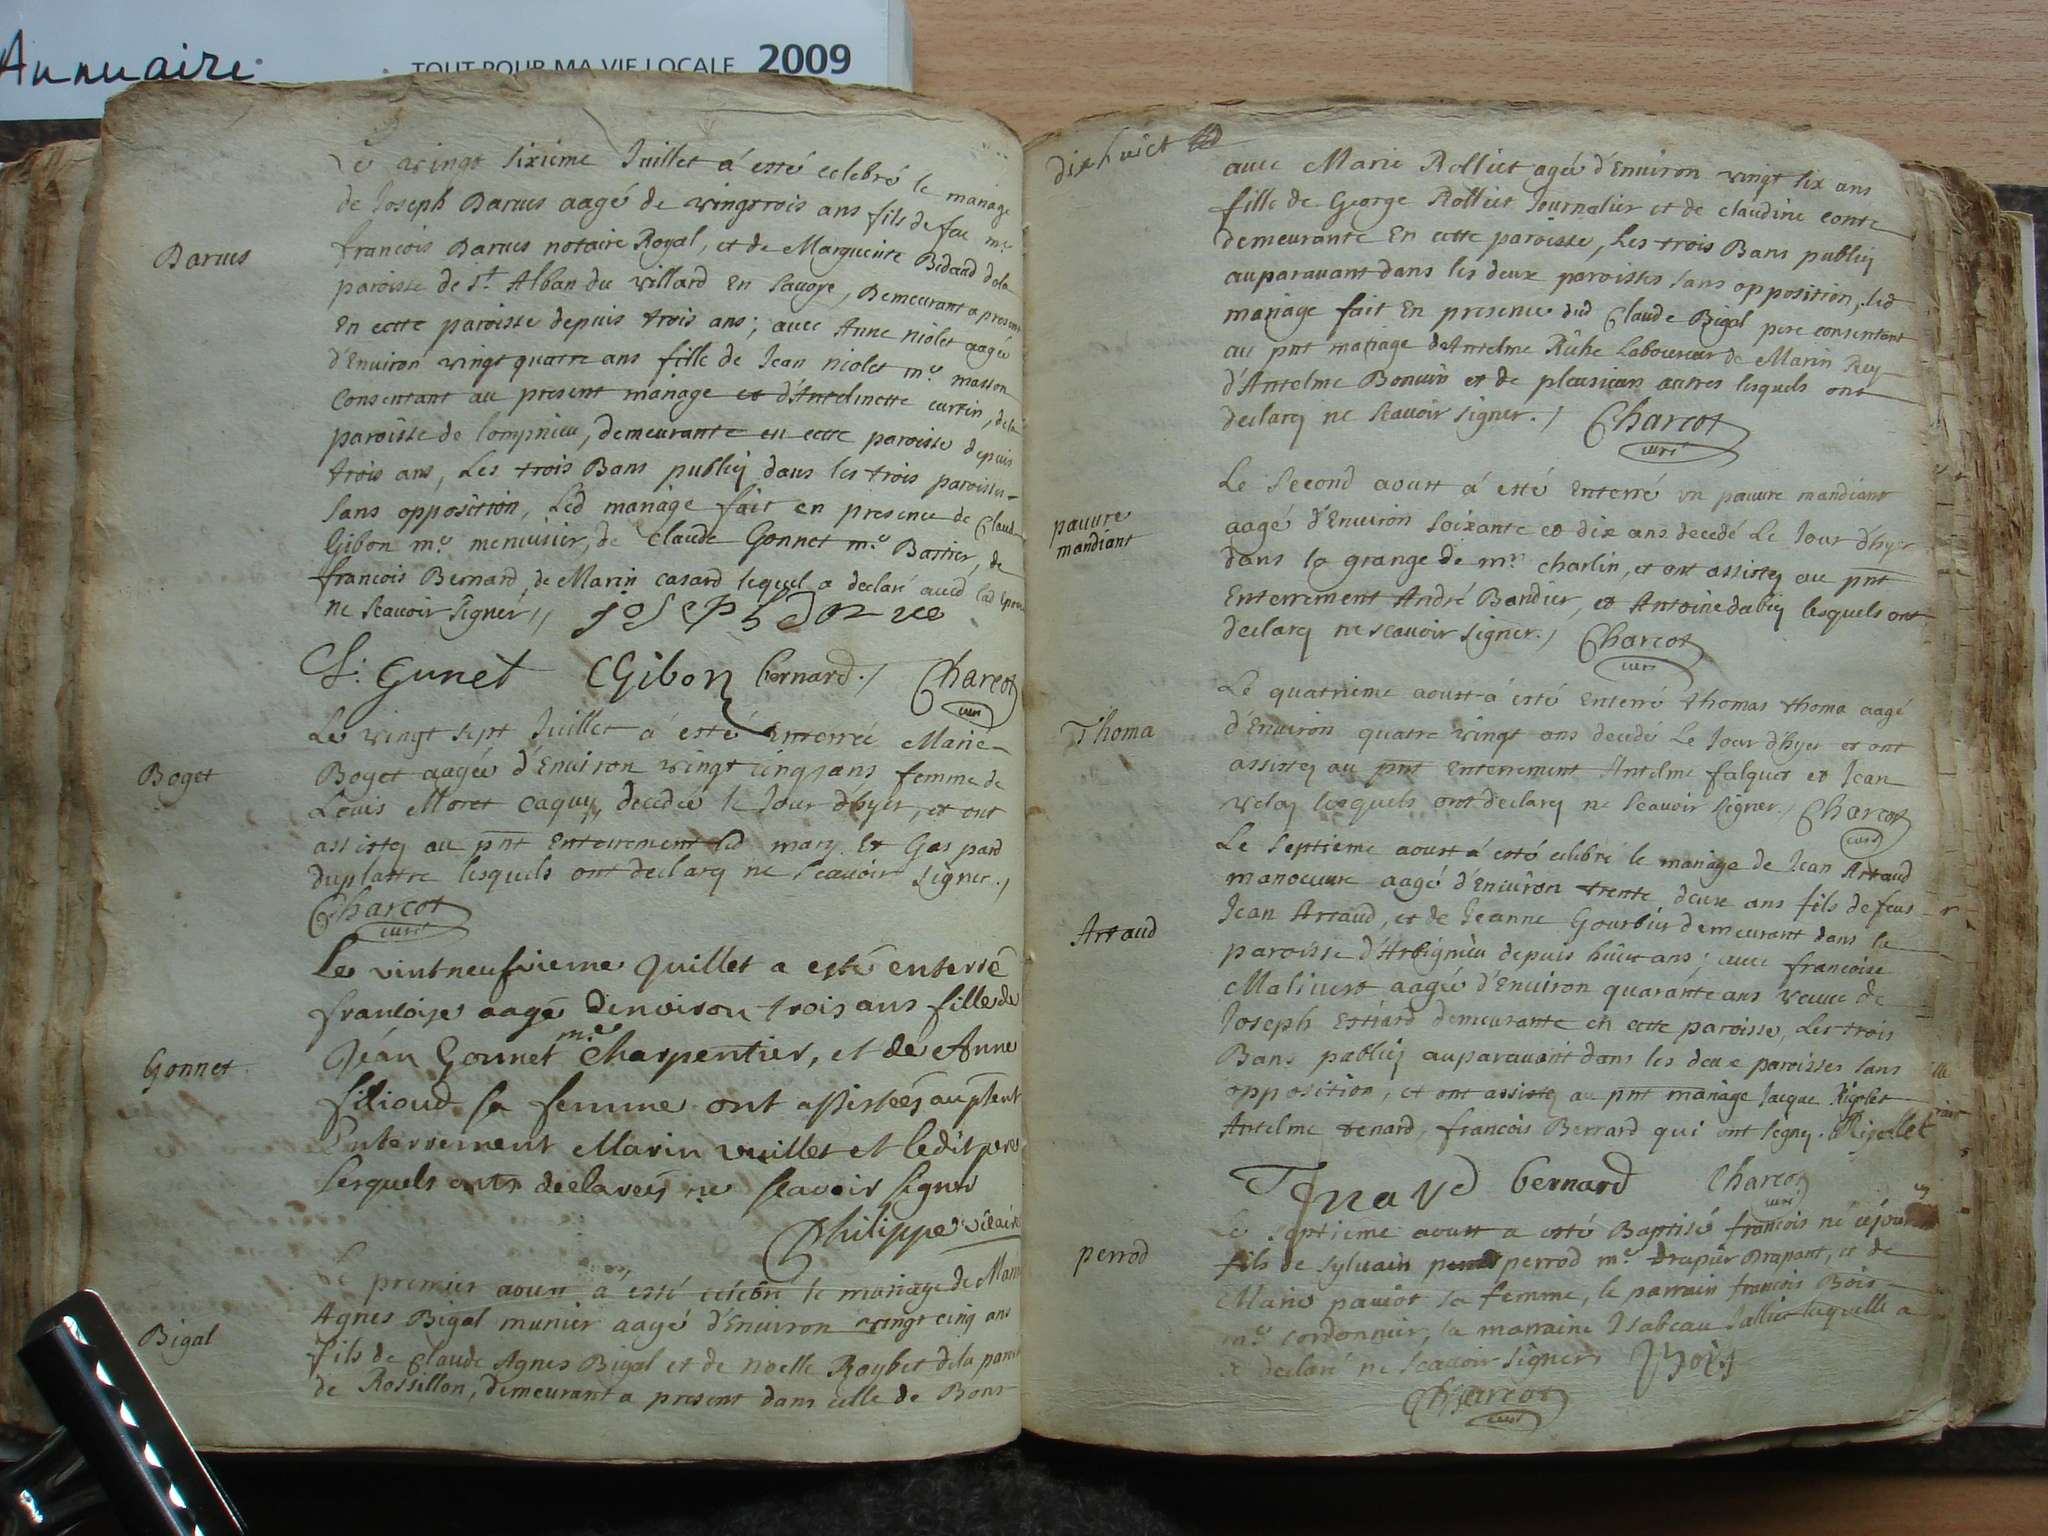 Annuaire
TOUT POUR MA VIE LOCALE 2009
Le vingt sixiéme Juillet á esté celebré le mariage
de Joseph Darves aagé de vingtrois ans fils de feu mr.
Darves
francois Darves notaire Royal, et de Marguerite Bidaud dela
paroisse de St. Alban du villard En Savoye, Demeurant a present
En cette paroisse depuis trois ans; avec Anne niolet aagée
d'Environ vingt quatre ans fille de Jean niolet me. masson
Consentant au present mariage et d'Antelmette curtin, dela
paroisse de lompnieu, demeurante en cette paroisse depuis
trois ans, Les trois Bans publiez dans les trois paroisses
sans opposition, Led mariage fait en presence de Claude
Gibon me. menuisier, de Claude Gonnet me. Bastier, de
francois Bernard, de Marin casard lequel a declaré avec lad
ne scavoir signer,
joseph Darve
Gunet CGibon bernard./ Charcot
curé
Le vingt sept Juillet á esté Enterrée Marie
Boget
Boget aagée d'Environ vingt cinq ans femme de
Louis Moret Caquy, decedée le Jour d'hyer, et ont
assistez au pnt Enterrement led mary Et Gaspard
duplastre lesquels ont declarez ne Scavoir signer./
Charcot
curé
Le vintneufvieme Juillet a esté enterré
francoise aagé denviron trois ans fille de
Gonnet
Jéan Gonnet me. Charpentier, et dé Anne
filioud sa femme ont assistéés au pñt
Enterrement Marin vuillet et ledit pere
Lesquels onts déelareés ne scavoir signer
Philippe vicaire
Le premier aoust á esté celebré le mariage de Marin
Bigal
Agnes Bigal munier aagé d'Environ vingt cinq ans
fils de Claude Agnes Bigal et de noelle Roybet dela paroisse
de Rossillon, demeurant a present dans celle de Bons
dix huict
avec Marie Rolliet agée d'Environ vingt six ans
fille de George Rolliet Journalier et de claudine conte
demeurante En cette paroisse, Les trois Bans publiez
auparavant dans les deux paroisses sans opposition, led
mariage fait En presence dud Claude Bigal pere consentant
au pnt mariage d'Antelme Rûhe Laboureur de Marin Rey
d'Antelme Bonvin et de plusieurs autres lesquels ont
declarez ne Scavoir signer./ Charcot
curé
Le Second aoust á esté Enterré vn pauvre mandiant
pauvre
mandiant
aagé d'Environ soixante et dix ans decedé Le Jour d'hyer
dans la grange de mr. charlin, et ont assistez au pnt
Enterrement André Bandier, et Antoine lesquels ont
declarez ne scavoir signer./ Charcot
curé
Le quatrieme aoust á esté Enterré thomas thoma aagé
Thoma
d'Environ quatre vingt ans decedé Le Jour d'hyer et ont
assistez au pnt Enterrement Antelme falquet et Jean
velay lesquels ont declarez ne Scavoir signer./ Charcot
curé
Le Septieme aoust á esté celebré le mariage de Jean Artaud
manoeuvre aagé d'Environ trente deux ans fils de feus
Artaud
Jean Artaud, et de Jeanne Gourbier demeurant dans la
paroisse d'Arbignieu depuis huict ans; avec francoise
Malivert aagée d'Environ quarante ans veuve de
Joseph Estiard demeurante en cette paroisse, Les trois
Bans publiez auparavant dans les deux paroisses sans
opposition, et ont assistez au pnt mariage Jacque Rigolet
Antelme tenard, francois Berrard qui ont signez. Rigollet
Tenard bernard Charcot
curé
Le septieme aoust a esté Baptisé francois né ce jour
perrod
fils de sylvain perrod me. drapier Drapant, et de
Marie paviot sa femme, le parrain francois Bois
me. cordonnier, la marraine Isabeau Sallier laquelle a
declaré ne Scavoir signer, fbois
Charcot
curé